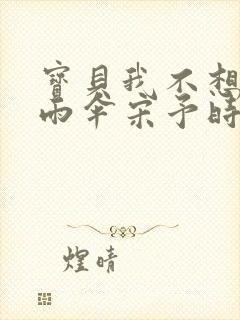 寶貝我不想
雨傘宋予時
煌晴